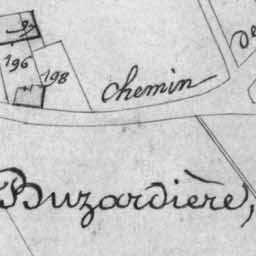 196
198
chemin
de
Buzardière,